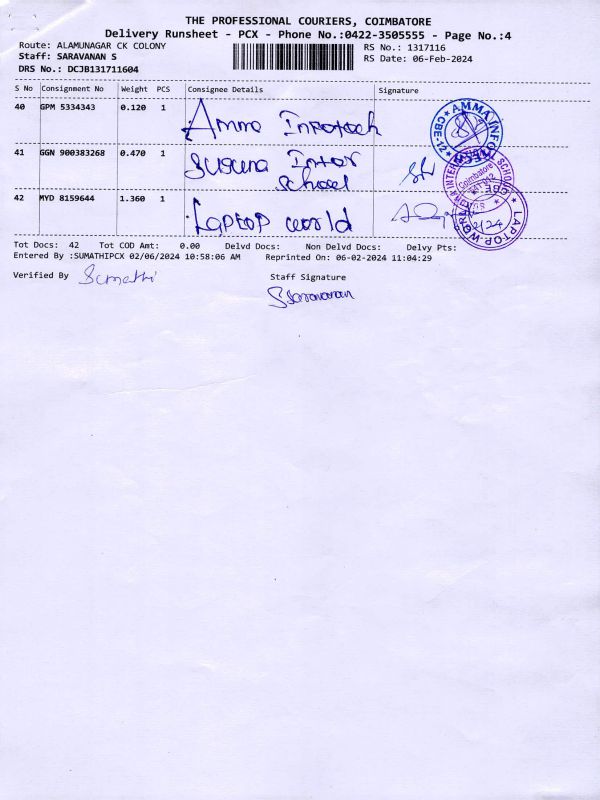 THE PROFESSIONAL COURIERS, COIMBATORE
Delivery Runsheet - PCX - Phone No.:0422-3505555 - Page No.:4
Route: ALAMUNAGAR CK COLONY RS No.: 1317116
Staff: SARAVANAN S RS Date: 06-Feb-2024
DRS No.: DCJB131711604
S No Consignment No Weight PCS Consignee Details Signature
40 GPM 5334343 0.120 1 Amma Infotech
AMMA INFOTECH CBE-12
41 GGN 900383268 0.470 1 Suguna Inter
School
INTERNATIONAL SCHOOL Coimbatore
42 MYD 8159644 1.360 1 Laptop world
LAPTOP WORLD CBE
Tot Docs: 42 Tot COD Amt: 0.00 Delvd Docs: Non Delvd Docs: Delvy Pts:
Entered By :SUMATHIPCX 02/06/2024 10:58:06 AM Reprinted On: 06-02-2024 11:04:29
Verified By Sumathi Staff Signature
S Saravanan